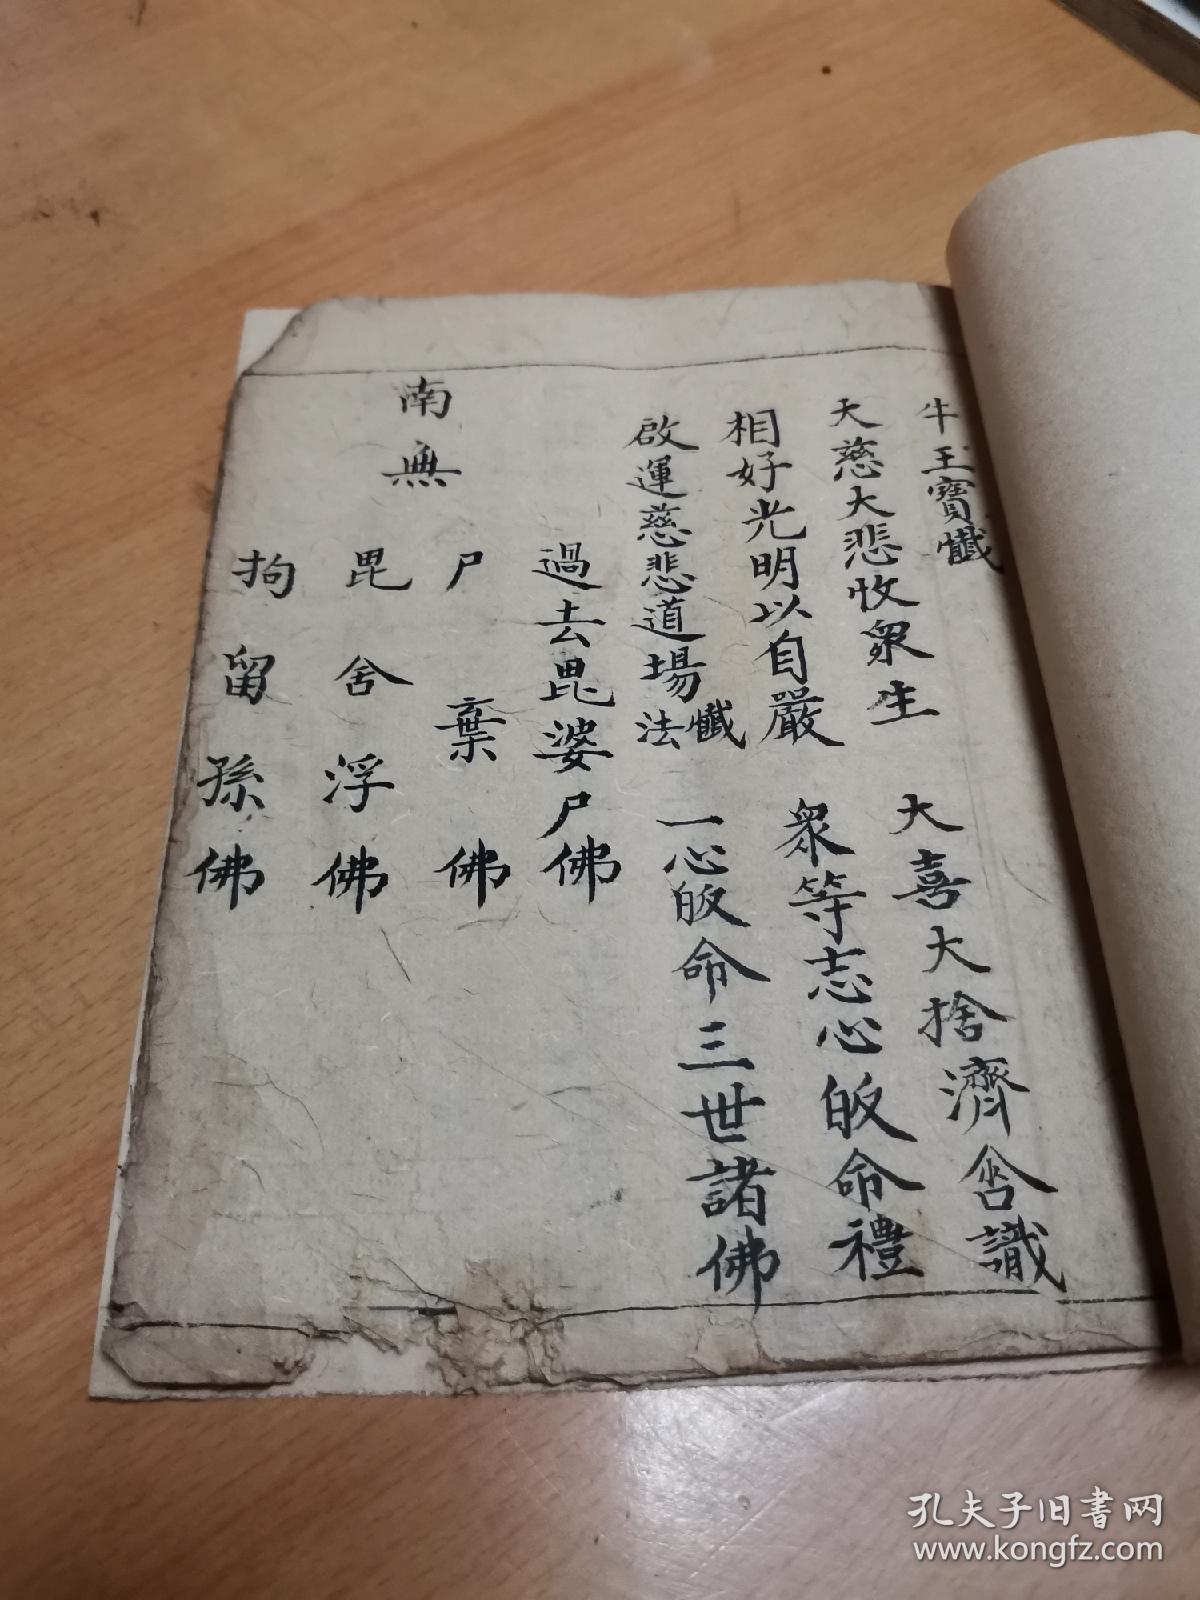 牛王寶懺
大慈大悲收衆生 大喜大捨濟含識
相好光明以自嚴 衆等志心皈命禮
啟運慈悲道場懺法 一心皈命三世諸佛
過去毘婆尸佛
南無
尸棄佛
毘舍浮佛
拘留孫佛
孔夫子旧书网
www.kongfz.com